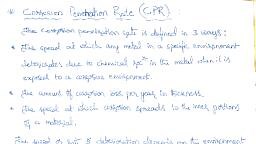 * Corrosion Penetration Rate (CPR)
The corrosion penetration rate is defined in 3 ways:
* The speed at which any metal in a specific environment
deteriorates due to chemical rxn in the metal when it is
exposed to a corrosive environment.
* The amount of corrosion loss per year in thickness.
* The speed at which corrosion spreads to the inner portions
of a material.
The speed of rate of deterioration depends on the environment